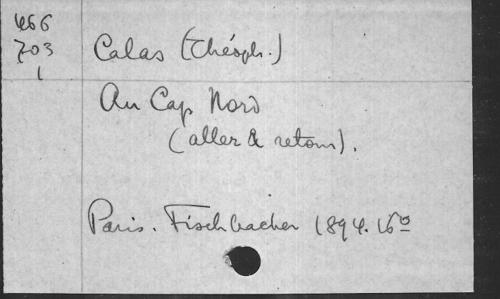 466
703
1
Calas (Théoph.)
Au Cap Nord
(aller & retour).
Paris. Fischbacher 1894. 16º